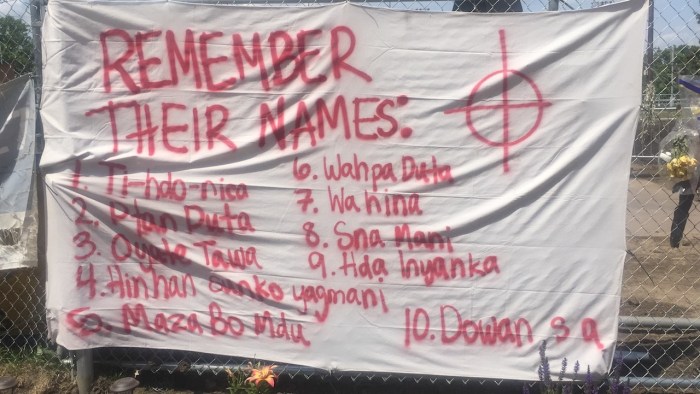 REMEMBER
THEIR NAMES:
1. Ti-hdo-nica
2. Ptan Duta
3. Oyate Tawa
4. Hinhan Sunko yagmani
5. Maza Bo Mdu
6. Wahpa Duta
7. Wa hina
8. Sna Mani
9. Hda Inyanka
10. Dowan s a